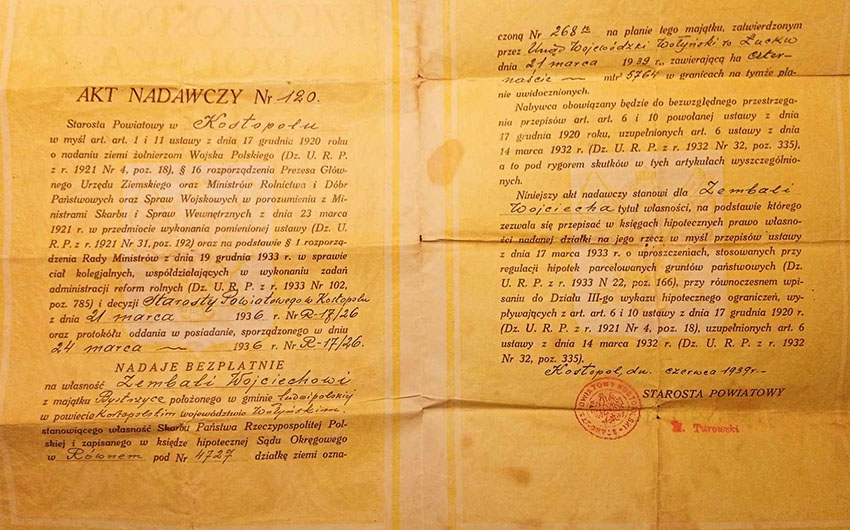 AKT NADAWCZY Nr 120.
Starosta Powiatowy w Kostopolu
w myśl art. art. 1 i 11 ustawy z dnia 17 grudnia 1920 roku
o nadaniu ziemi żołnierzom Wojska Polskiego (Dz. U. R. P.
z r. 1921 Nr 4, poz. 18), § 16 rozporządzenia Prezesa Głów-
nego Urzędu Ziemskiego oraz Ministrów Rolnictwa i Dóbr
Państwowych oraz Spraw Wojskowych w porozumieniu z Mi-
nistrami Skarbu i Spraw Wewnętrznych z dnia 23 marca
1921 r. w przedmiocie wykonania pomienionej ustawy (Dz. U.
R. P. z r. 1921 Nr 31, poz. 192) oraz na podstawie § 1 rozporzą-
dzenia Rady Ministrów z dnia 19 grudnia 1933 r. w sprawie
ciał kolegjalnych, współdziałających w wykonaniu zadań
administracji reform rolnych (Dz. U. R. P. z r. 1933 Nr 102,
poz. 785) i decyzji Starosty Powiatowego w Kostopolu
z dnia 21 marca 1936 r. Nr R-17/26
oraz protokółu oddania w posiadanie, sporządzonego w dniu
24 marca 1936 r. Nr R-17/26.
NADAJE BEZPŁATNIE
na własność Zembali Wojciechowi
z majątku Bystrzyce położonego w gminie ludwipolskiej
w powiecie Kostopolskim województwie Wołyńskim,
stanowiącego własność Skarbu Państwa Rzeczypospolitej Pol-
skiej i zapisanego w księdze hipotecznej Sądu Okręgowego
w Równem pod Nr 4727 działkę ziemi ozna-
czoną Nr 268 na planie tego majątku, zatwierdzonym
przez Urząd Wojewódzki Wołyński w Łucku
dnia 21 marca 1939 r., zawierającą ha czter-
naście mtr² 5764 w granicach na tymże pla-
nie uwidocznionych.
Nabywca obowiązany będzie do bezwzględnego przestrzega-
nia przepisów art. art. 6 i 10 powołanej ustawy z dnia
17 grudnia 1920 roku, uzupełnionych art. 6 ustawy z dnia
14 marca 1932 r. (Dz. U. R. P. z r. 1932 Nr 32, poz. 335),
a to pod rygorem skutków w tych artykułach wyszczególnio-
nych.
Niniejszy akt nadawczy stanowi dla Zembali
Wojciecha tytuł własności, na podstawie którego
zezwala się przepisać w księgach hipotecznych prawo własno-
ści nadanej działki na jego rzecz w myśl przepisów ustawy
z dnia 17 marca 1933 r. o uproszczeniach, stosowanych przy
regulacji hipotek parcelowanych gruntów państwowych (Dz.
U. R. P. z r. 1933 N 22, poz. 166), przy równoczesnem wpi-
saniu do Działu III-go wykazu hipotecznego ograniczeń, wy-
pływających z art. art. 6 i 10 ustawy z dnia 17 grudnia 1920 r.
(Dz. U. R. P. z r. 1921 Nr 4, poz. 18), uzupełnionych art. 6
ustawy z dnia 14 marca 1932 r. (Dz. U. R. P. z r. 1932
Nr 32, poz. 335).
Kostopol, dn. czerwca 1939 r.
STAROSTA POWIATOWY
Turowski